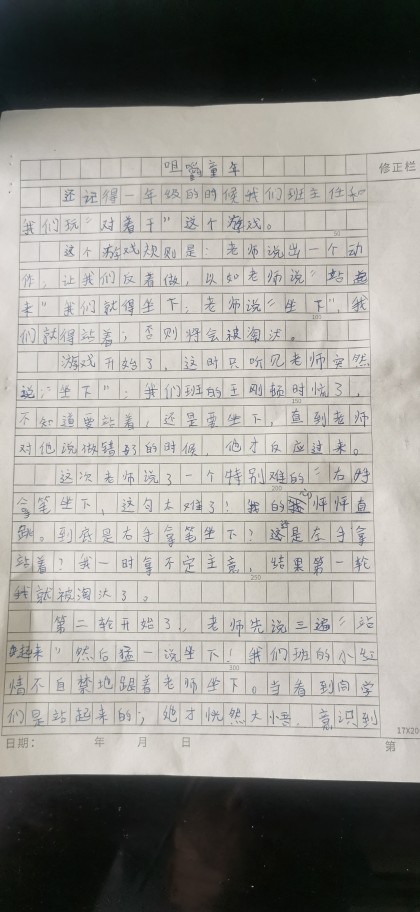 咀嚼童年
修正栏
还记得一年级的时候我们班主任和
我们玩"对着干"这个游戏。
这个游戏规则是：老师说出一个动
作，让我们反着做，以如老师说"站起
来"我们就得坐下；老师说"坐下"，我
们就得站着；否则将会被淘汰。
游戏开始了，这时只听见老师突然
说："坐下"；我们班的王刚顿时慌了，
不知道要站着，还是要坐下，直到老师
对他说做错的时候，他才反应过来。
这次老师说了一个特别难的"右手
拿笔坐下，这句太难了！我的心怦怦直
跳。到底是右手拿笔坐下？还是左手拿
站着？我一时拿不定主意，结果第一轮
我就被淘汰了。
第二轮开始了，老师先说三遍"站
起来"然后猛一说坐下！我们班的小红
情不自禁地跟着老师坐下。当看到同学
们是站起来的；她才恍然大悟，意识到
日期： 年 月 日 第
17X20